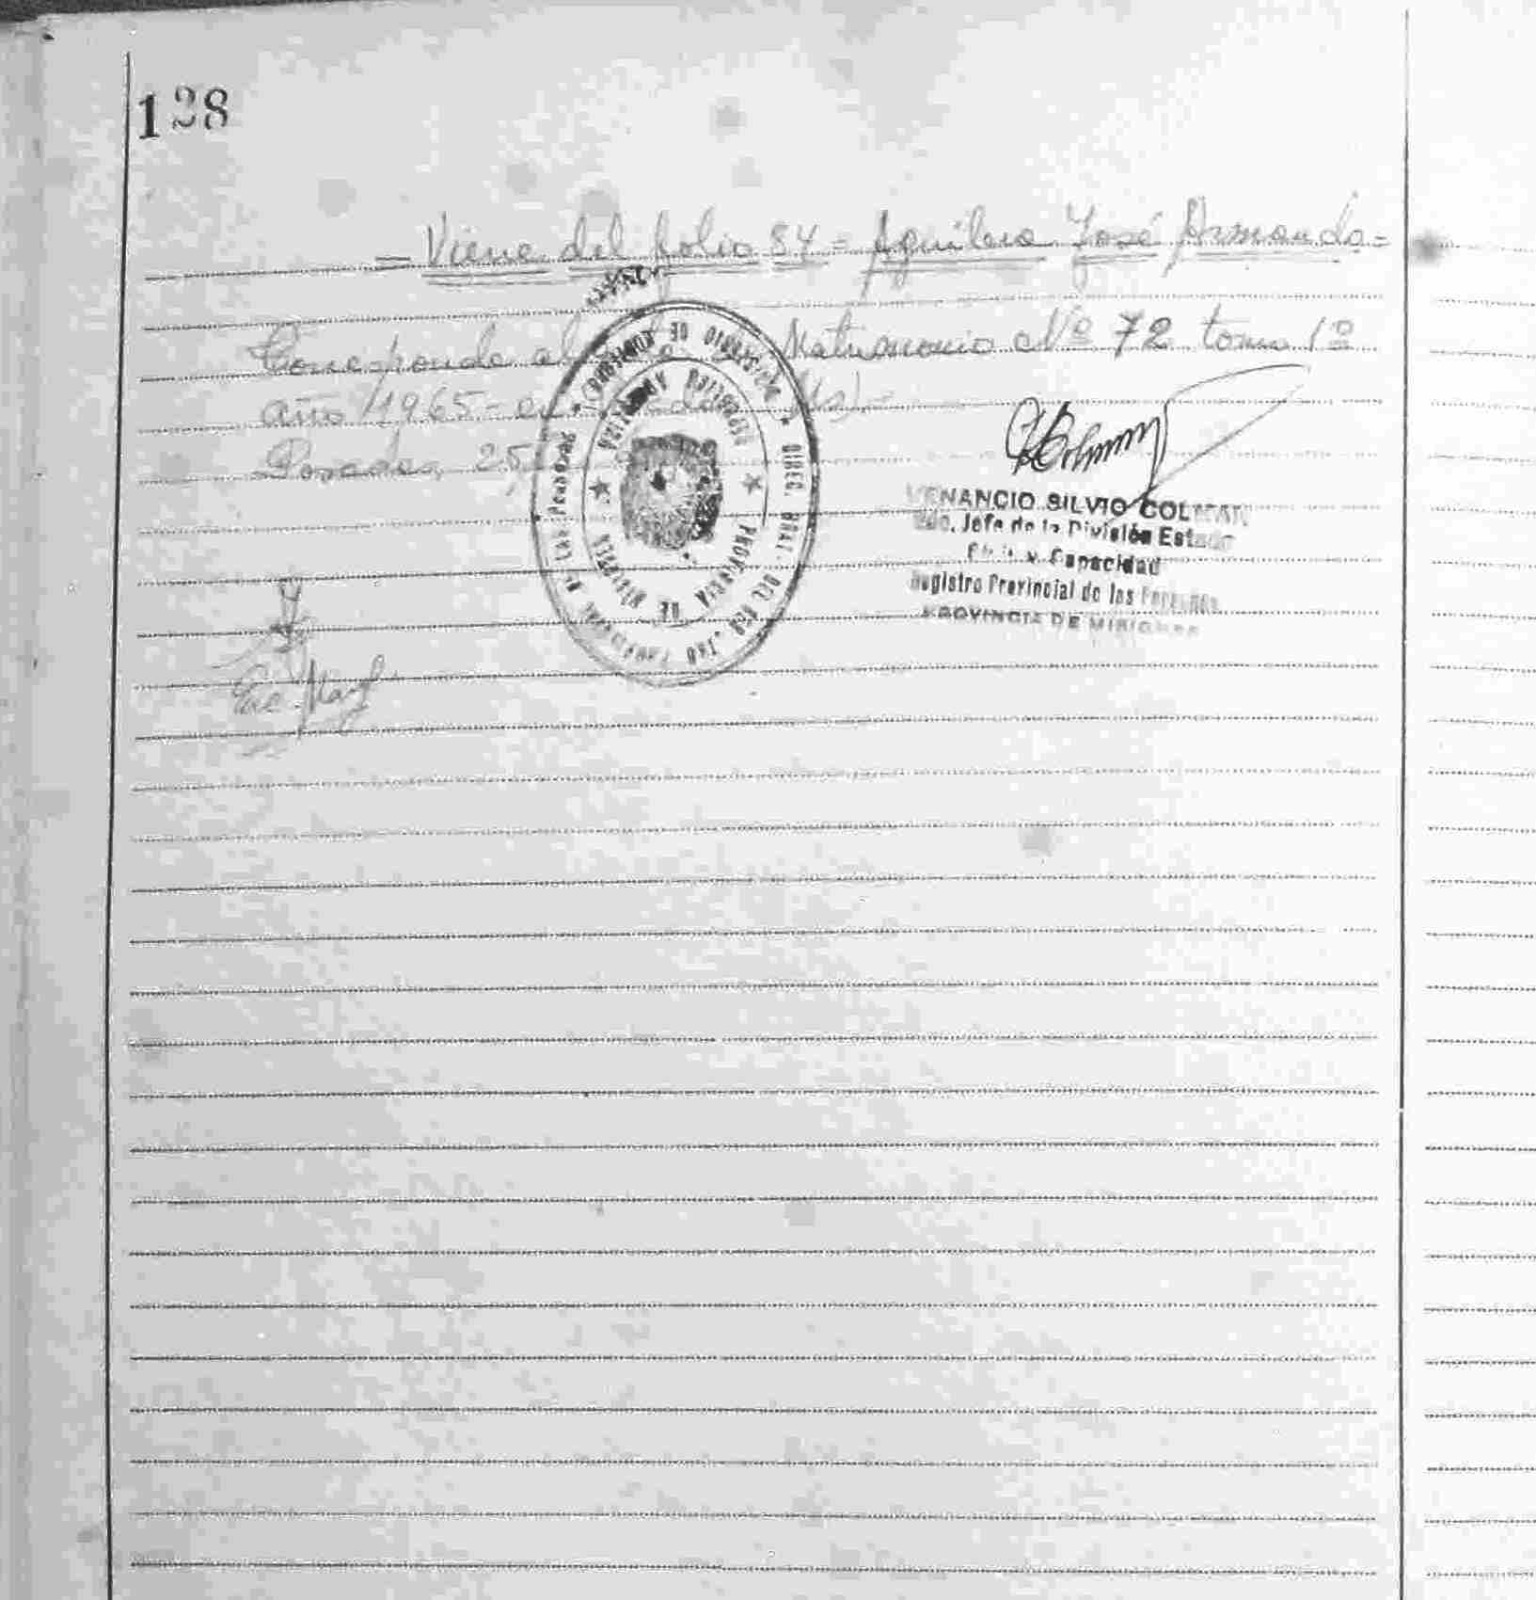 128
- Viene del folio 84 = Aguilera José Armando =
Corresponde al Matrimonio Nº 72 tomo 1º
año 1965 -
Posadas, 25
VENANCIO SILVIO COLMAN
Jefe de la División Estado
Civil y Capacidad
Registro Provincial de las Personas
PROVINCIA DE MISIONES
REPUBLICA ARGENTINA
PROVINCIA DE MISIONES
MINISTERIO DE GOBIERNO
DIREC. GRAL. DEL REG. PROVINCIAL DE LAS PERSONAS